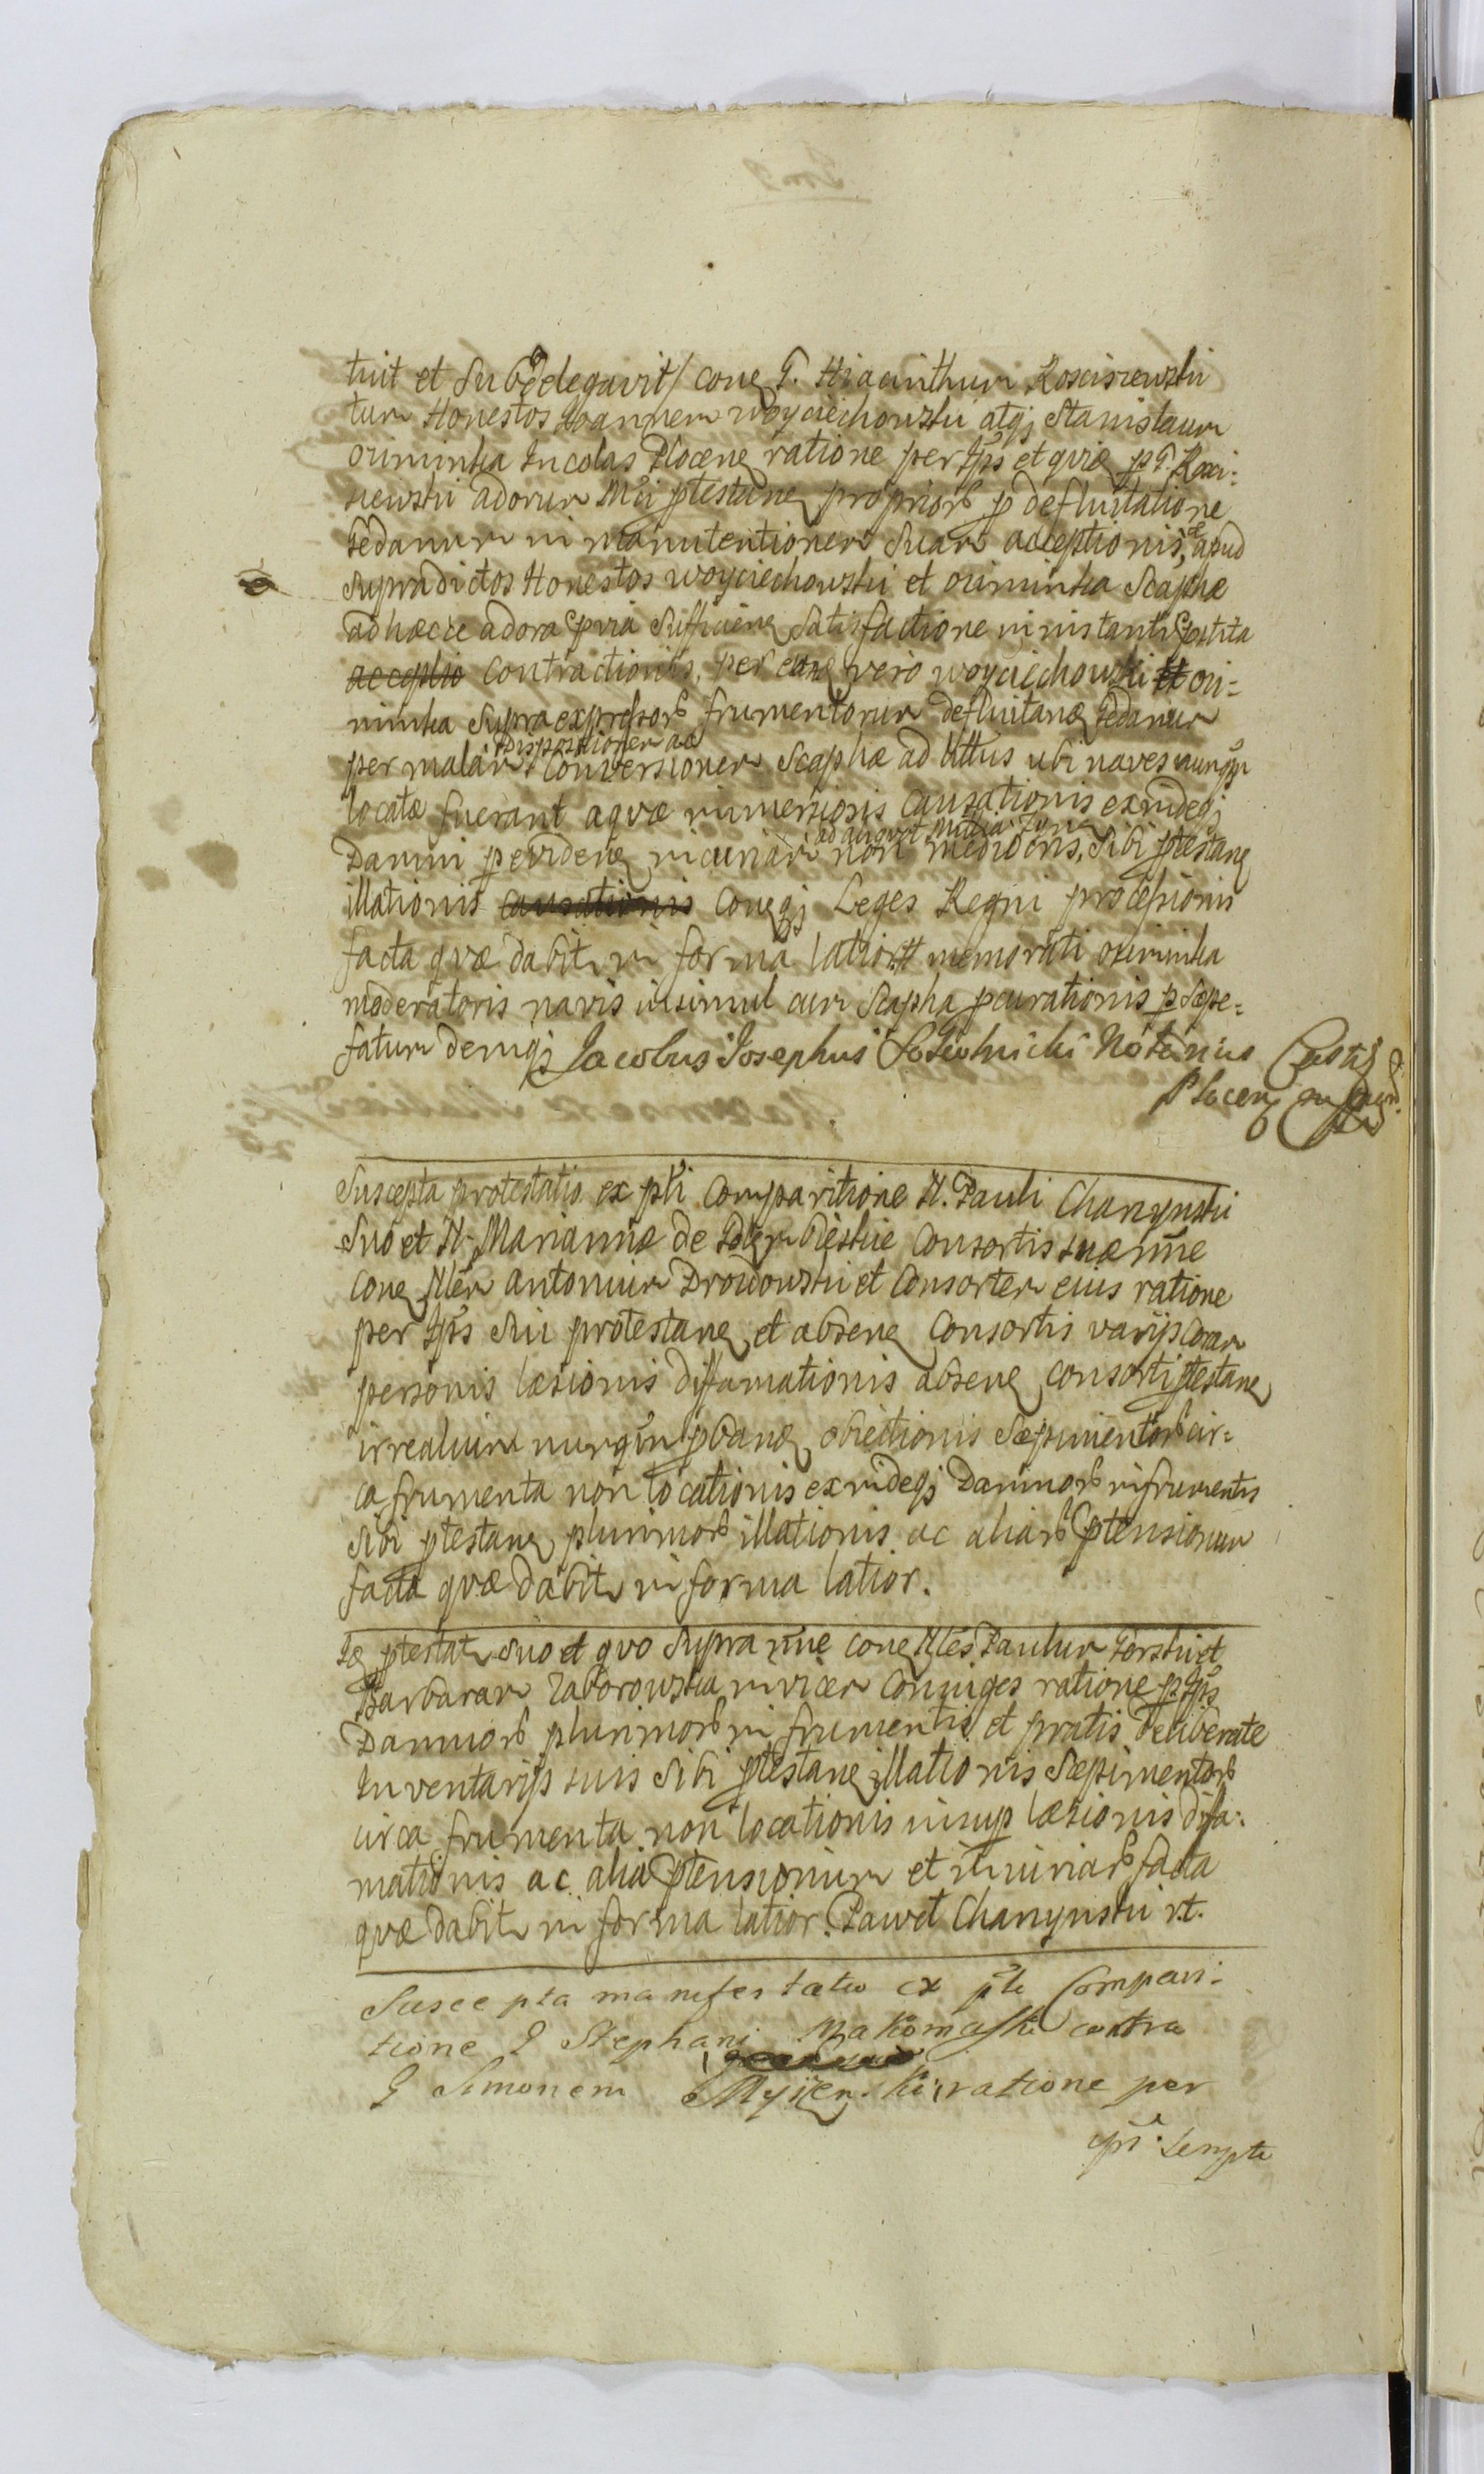 tuit et Subdelegavit/ cone G. Hiacinthum Kosciszewski
tum Honestos Joannem Woyciechowski atqj Stanislaum
Ciminska Incolas Plocene ratione per Ips et quidē p G. Kosci:
szewski adorum Mci ptestane propriorb p defluitatione
Gedanum in manutentionem Suam acceptionis, et apud
Supradictos Honestos Woyciechowski et Ciminska Scaphæ
ad hæcce adora pvia Sufficiene Satisfactione in instanti petita
acceptio Contractionis, per eosdē vero Woyciechowski et Ci=
minska Supra expressorb frumentorum defluitandē Gedanum
per malam Dispositionem ac Conversionem Scaphæ ad littus ubi naves nunqm
locatæ fuerant aquæ immersionis Causationis exindeqj
Damni p evidenē incuriam ad aliquot Millia non mediocris, Sibi ptestane
illationis causationis Coneqj Leges Regni processionis
facta quæ dabit in forma latior. et memorati Ciminska
moderatoris navis insimul cum Scapha pcurationis p Sæpe=
fatum deniqj Jacobus Josephus Notarius Castr
Plocen
Suscepta protestatio ex pti Comparitione N. Pauli Chanynski
Suo et N. Mariannæ de Consortis suæ nne
cone Nlem Antonium Drozdowski et Consortem eius ratione
per Ips Sui protestane et absene Consortis varijs coram
personis læsionis diffamationis absene consorti ptestane
irrealium nunqm pbandē obiectionis Sæpimentorb cir=
ca frumenta non locationis exindeqj Damnorb in frumentis
Sibi ptestane plurimorb illationis ac aliarb ptensionum
facta quæ dabit in forma latior.
Idē ptestat Suo et quo Supra nne cone Nles Paulum Gorski et
Barbaram Zaborowska invicem Coniuges ratione p Ips
Damnorb plurimorb in frumentis et pratis deliberate
Inventarijs suis Sibi ptestane illationis Sæpimentorb
circa frumenta non locationis insup læsionis diffa:
mationis ac alia ptensionum et iniuriarb facta
quæ dabit in forma latior. Paweł Chanynski r.t.
Suscepta manifestatio ex pte Compari:
tione G Stephani Makomaski contra
G Simonem ratione per